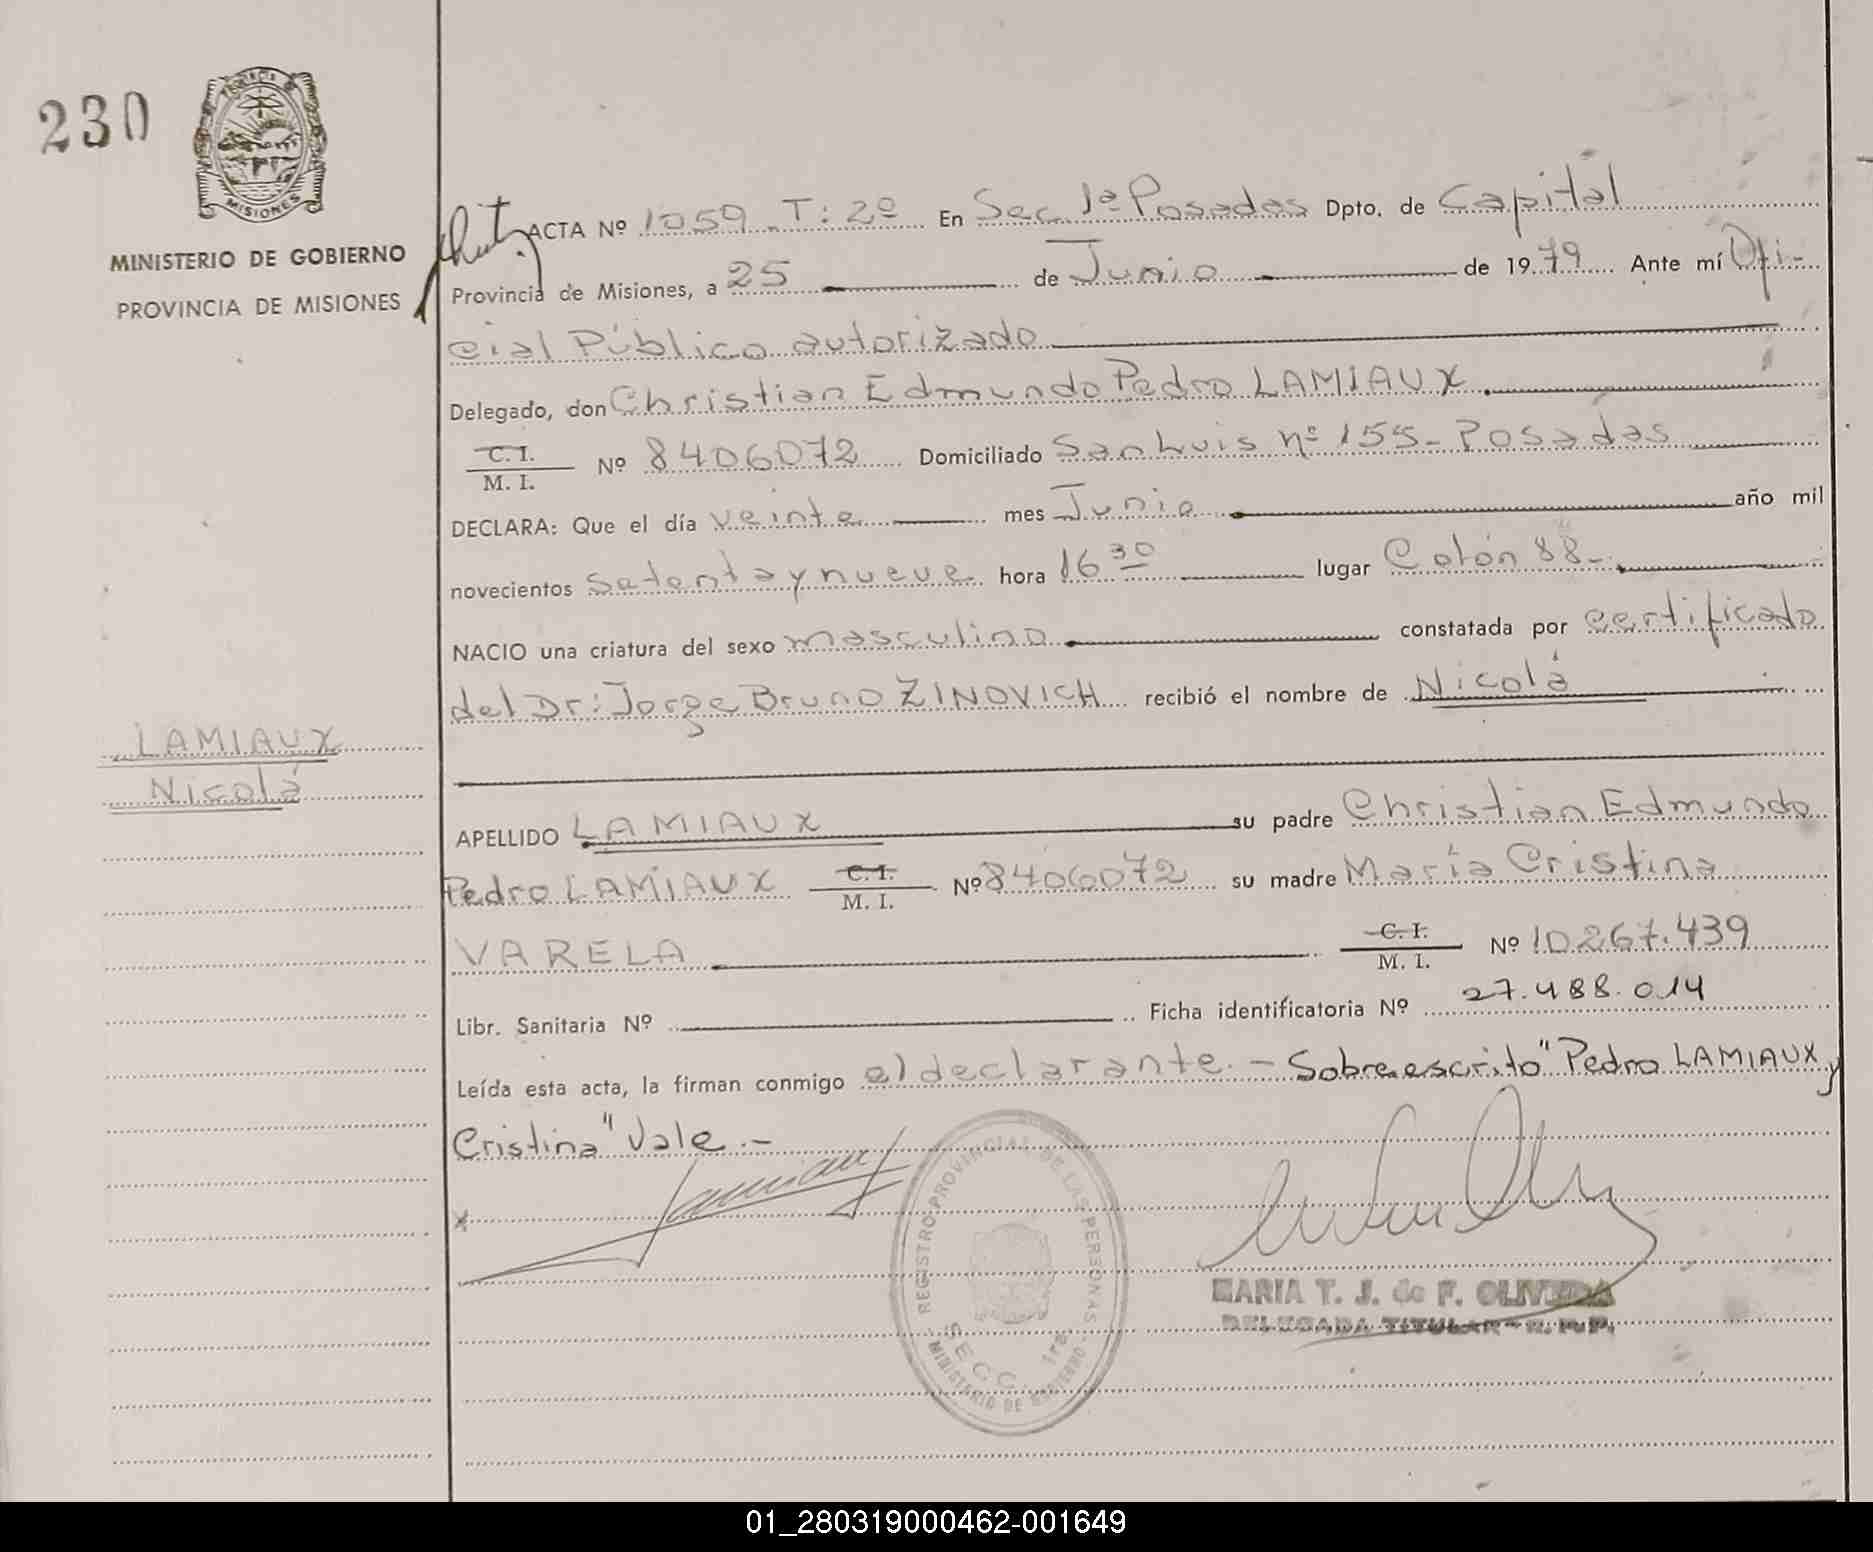 230
PROVINCIA
MISIONES
MINISTERIO DE GOBIERNO
PROVINCIA DE MISIONES
ACTA Nº 1059 - T: 2º En Sec 1ª Posadas Dpto. de Capital
Provincia de Misiones, a 25 de Junio de 1979 Ante mí Ofi-
cial Público autorizado
Delegado, don Christian Edmundo Pedro LAMIAUX
C. I.
M. I. Nº 8406072 Domiciliado San Luis nº 155 - Posadas
DECLARA: Que el día veinte mes Junio año mil
novecientos setenta y nueve hora 16 30 lugar Colón 88-
NACIO una criatura del sexo masculino constatada por certificado
del Dr: Jorge Bruno ZINOVICH recibió el nombre de Nicolá
LAMIAUX
Nicolá
APELLIDO LAMIAUX su padre Christian Edmundo
Pedro LAMIAUX C. I. M. I. Nº 8406072 su madre María Cristina
VARELA C. I. M. I. Nº 10267.439
Libr. Sanitaria Nº Ficha identificatoria Nº 27.488.014
Leída esta acta, la firman conmigo el declarante. - Sobreescrito "Pedro LAMIAUX y
Cristina" Vale.-
x Lamiaux
REGISTRO PROVINCIAL DE LAS PERSONAS
SECC. 1ra
MINISTERIO DE GOBIERNO
MARIA T. J. de F. OLIVEIRA
DELEGADA TITULAR - R. P. P.
01_280319000462-001649